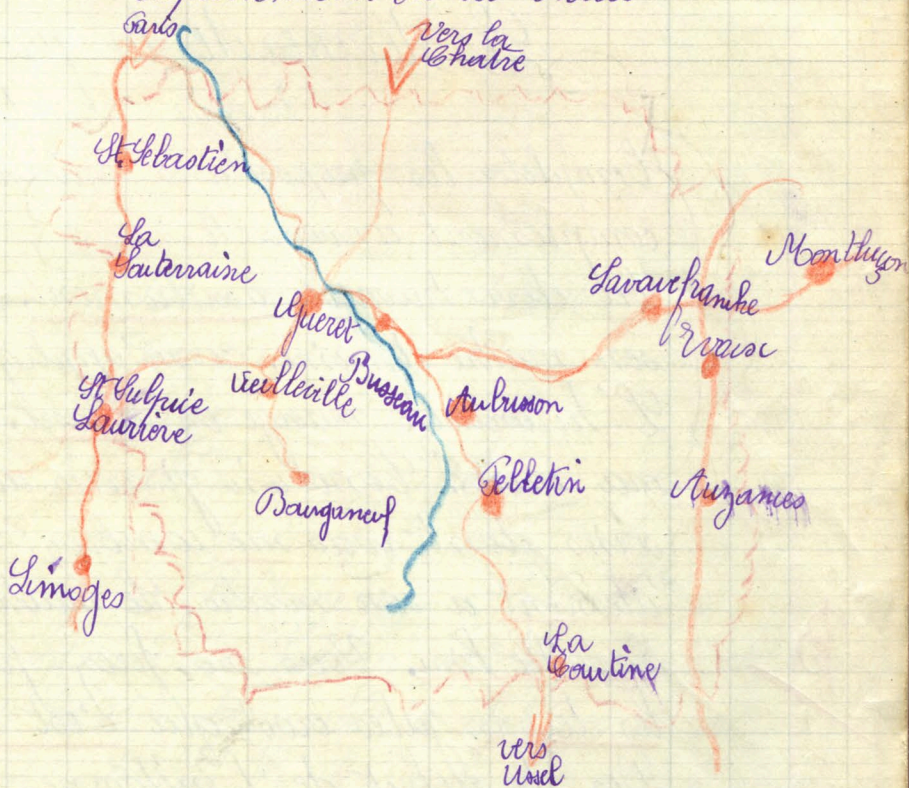 Paris
Vers la
Chatre
St Sebastien
La
Souterraine
Montluçon
Lavaufranche
Gueret
Evaux
Busseau
Vieilleville
St Sulpice
Laurière
Aubusson
Felletin
Auzances
Bourganeuf
Limoges
La
Courtine
vers
Ussel